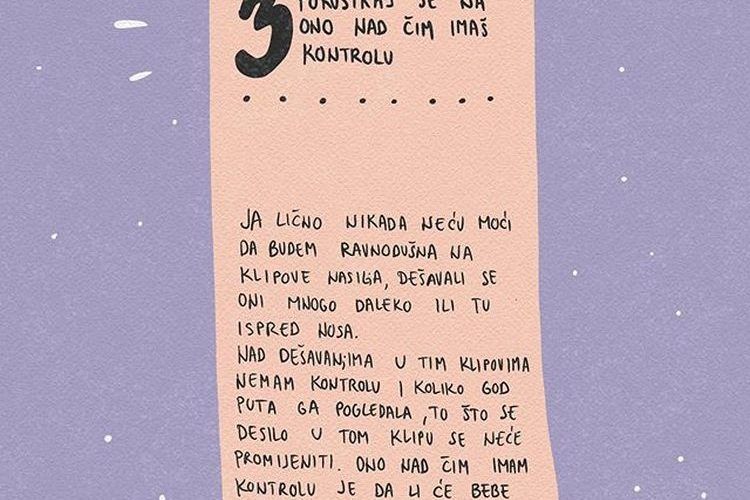 3 FOKUSIRAJ SE NA
ONO NAD ČIM IMAŠ
KONTROLU
JA LIČNO NIKADA NEĆU MOĆI
DA BUDEM RAVNODUŠNA NA
KLIPOVE NASILJA, DEŠAVALI SE
ONI MNOGO DALEKO ILI TU
ISPRED NOSA.
NAD DEŠAVANJIMA U TIM KLIPOVIMA
NEMAM KONTROLU I KOLIKO GOD
PUTA GA POGLEDALA, TO ŠTO SE
DESILO U TOM KLIPU SE NEĆE
PROMIJENITI. ONO NAD ČIM IMAM
KONTROLU JE DA LI ĆE BEBE